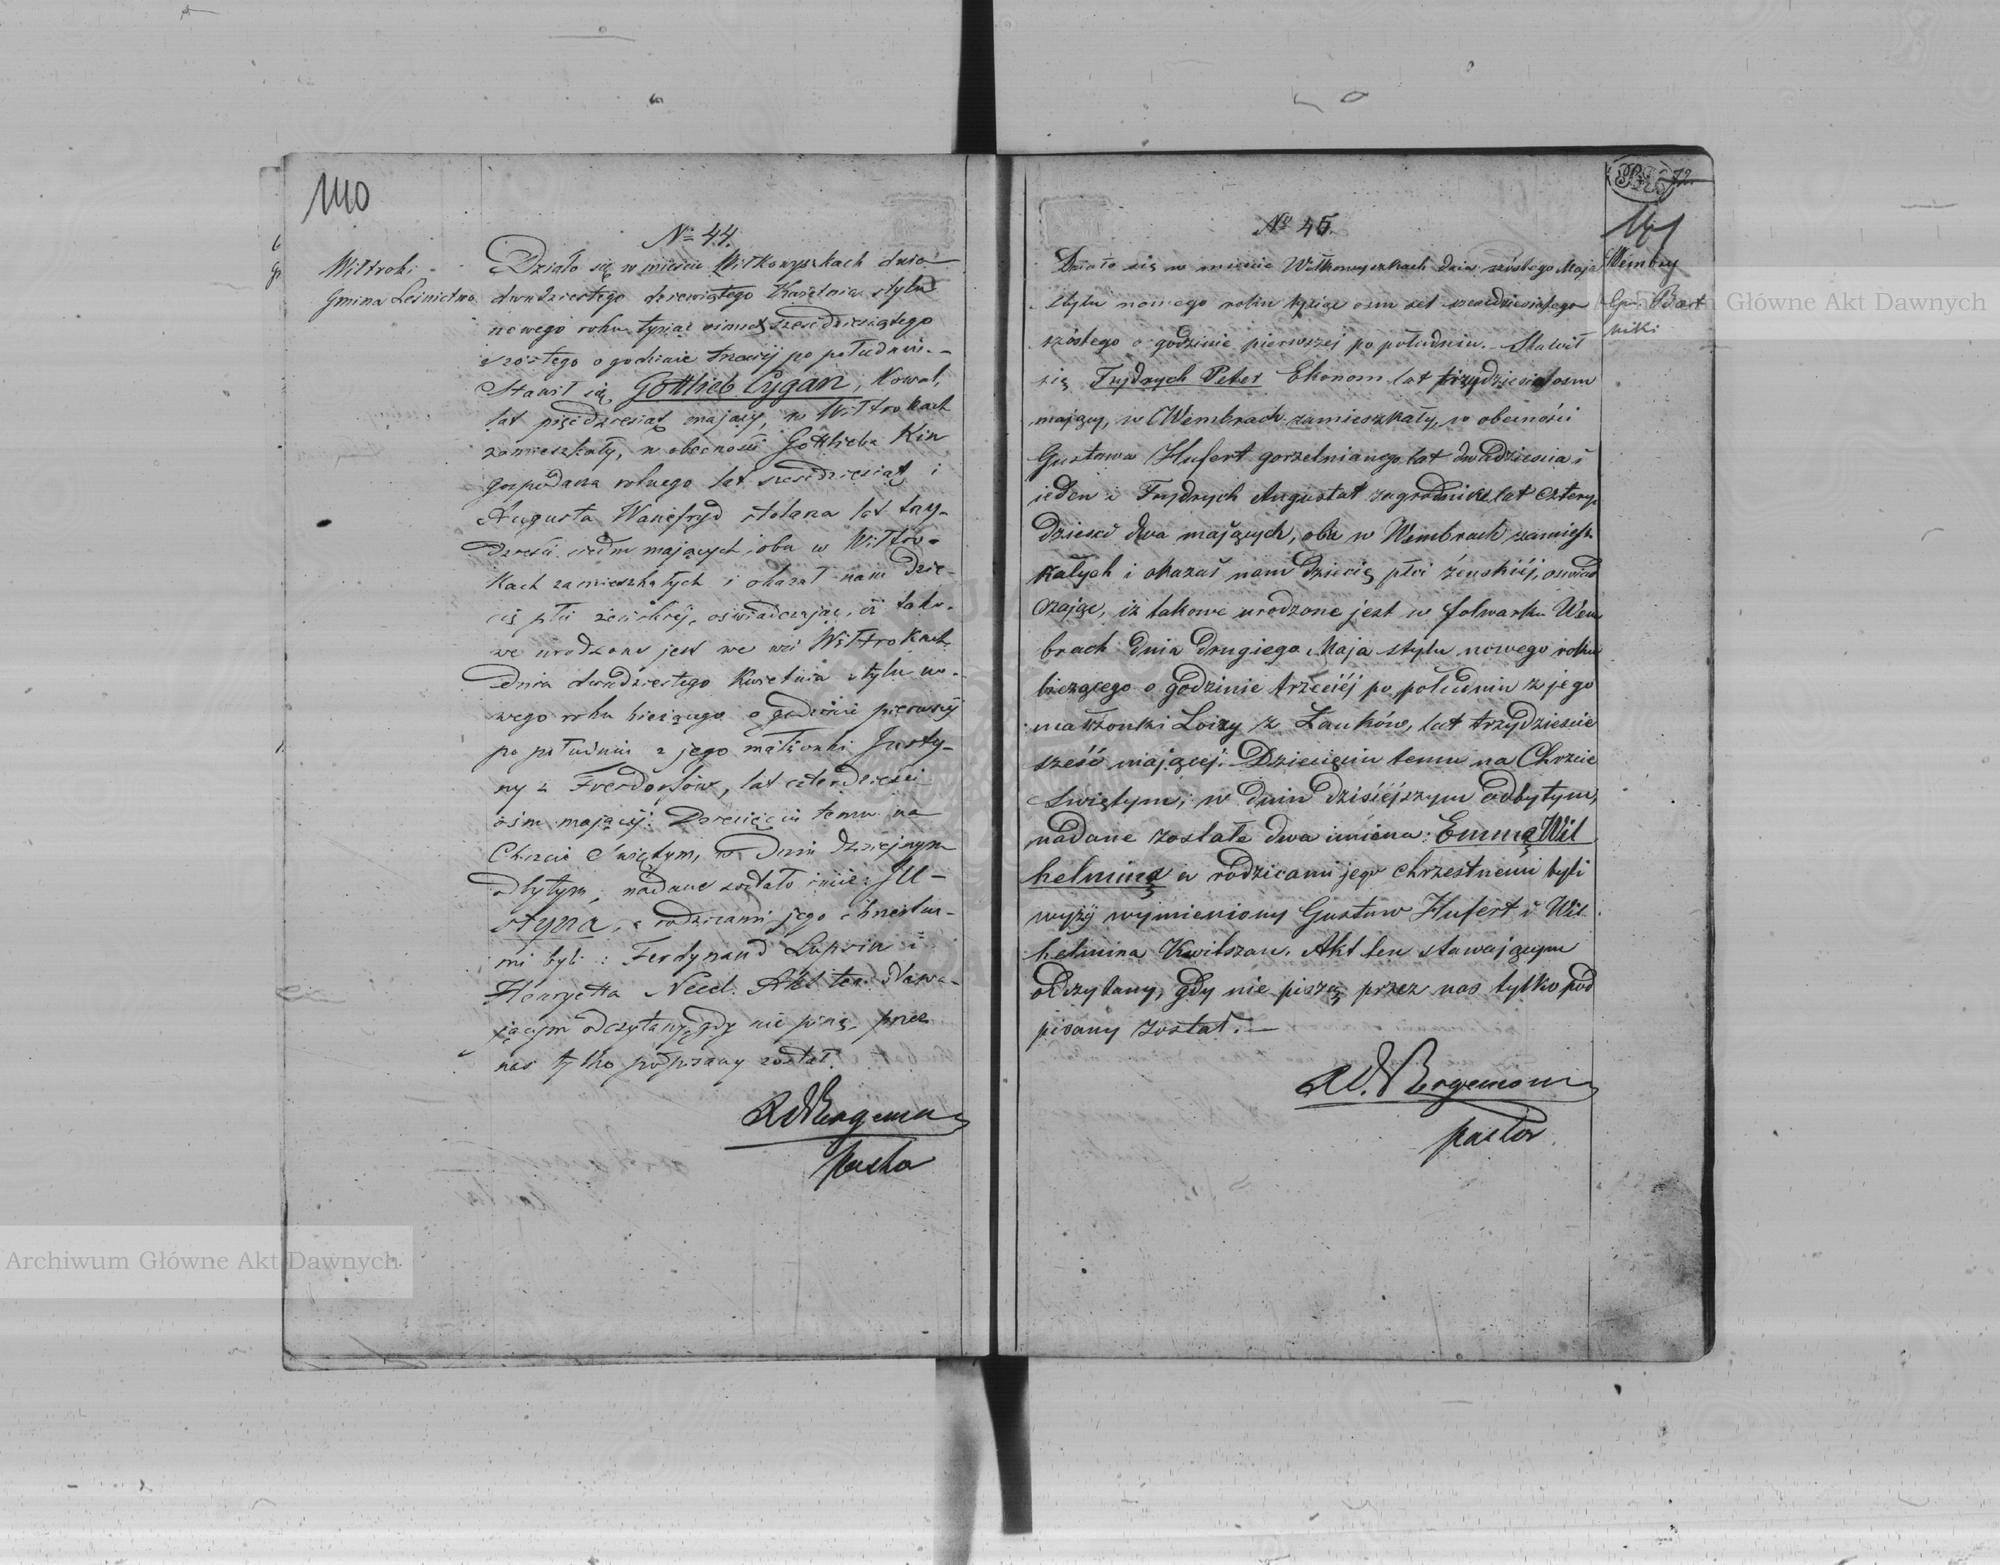 140
№ 44.
Wiłtroki
Gmina Leśnictwo
Działo się w mieście Wiłkowyszkach dnia
dwudziestego dziewiątego Kwietnia stylu
nowego roku tysiąc ośmset sześćdziesiątego
szóstego o godzinie trzeciej po południu. –
Stawił się Gottlieb Cygan, Kowal,
lat pięćdziesiąt mający, w Wiłtrokach
zamieszkały, w obecności Gottlieba Kin
gospodarza rolnego lat sześćdziesiąt, i
Augusta Wanefryd stolarza lat trzy-
dzieści siedm mających, oba w Wiłtro-
kach zamieszkałych i okazał nam dzie-
cię płci żeńskiej, oświadczając, iż tako-
we urodzone jest we wsi Wiłtrokach
dnia dwudziestego Kwietnia stylu no-
wego roku bieżącego o godzinie pierwszej
po południu z jego małżonki Justy-
ny z , lat czterdzieści
ośm mającej. Dziecięciu temu na
Chrzcie Świętym, w dniu dzisiejszym
odbytym, nadane zostało imie: Ju-
styna, a rodzicami jego chrzestne-
mi byli: Ferdynand i
Henryetta Akt ten stawa-
jącym odczytany, gdy nie piszą, przez
nas tylko podpisany został.
R W Bergeman
Pastor
72.
141
№ 45.
Wembry
Gm. Bart
niki
Działo się w mieście Wiłkowyszkach dnia szóstego Maja
stylu nowego roku tysiąc ośm set sześćdziesiątego
szóstego o godzinie pierwszej po południu. Stawił
się Frydrych Peter Ekonom lat trzydzieści ośm
mający, w Wembrach zamieszkały, w obecności
Gustawa Hufert gorzelnianego lat dwadzieścia i
ieden i Frydrych Augustat zagrodnika lat cztery-
dzieści dwa mających, oba w Wembrach zamiesz-
kałych i okazał nam dziecię płci żeńskiéj, oświad
czając, iż takowe urodzone jest w folwarku Wem
brach dnia drugiego Maja stylu nowego roku
bieżącego o godzinie trzeciéj po południu z jego
małżonki Loizy z Lauków, lat trzydzieście
sześć mającéj. Dziecięciu temu na Chrzcie
Świętym, w dniu dzisiéjszym odbytym,
nadane zostałe dwa imiona: Emma Wil
helmina a rodzicami jego chrzestnemi byli
wyżéj wymieniony Gustaw Hufert i Wil
helmina Kwitszau. Akt ten stawającym
odczytany, gdy nie piszą przez nas tylko pod
pisany został. –
R W. Bergeman
Pastor
Archiwum Główne Akt Dawnych
Archiwum Główne Akt Dawnych